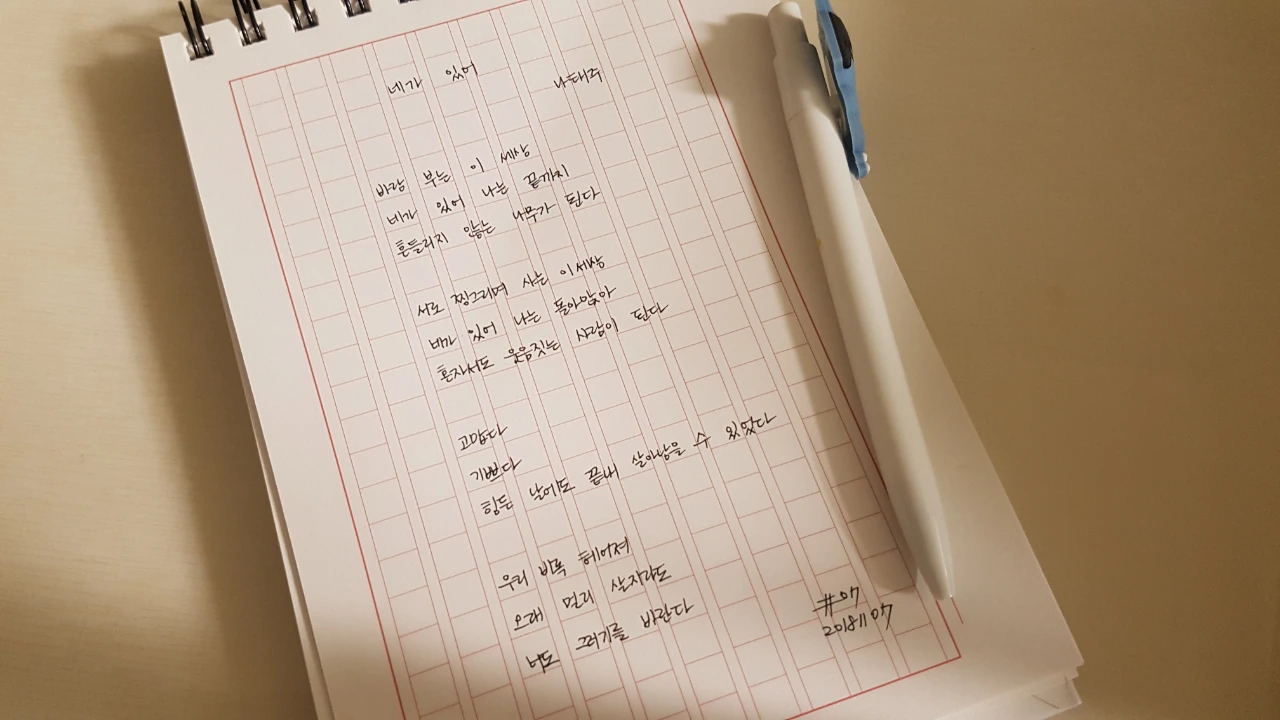 네가 있어
나태주
바람 부는 이 세상
네가 있어 나는 끝까지
흔들리지 않는 나무가 된다
서로 찡그리며 사는 이 세상
네가 있어 나는 돌아앉아
혼자서도 웃음짓는 사람이 된다
고맙다
기쁘다
힘든 날에도 끝내 살아남을 수 있었다
우리 비록 헤어져
오래 멀리 살지라도
너도 그러기를 바란다
#07
20181107